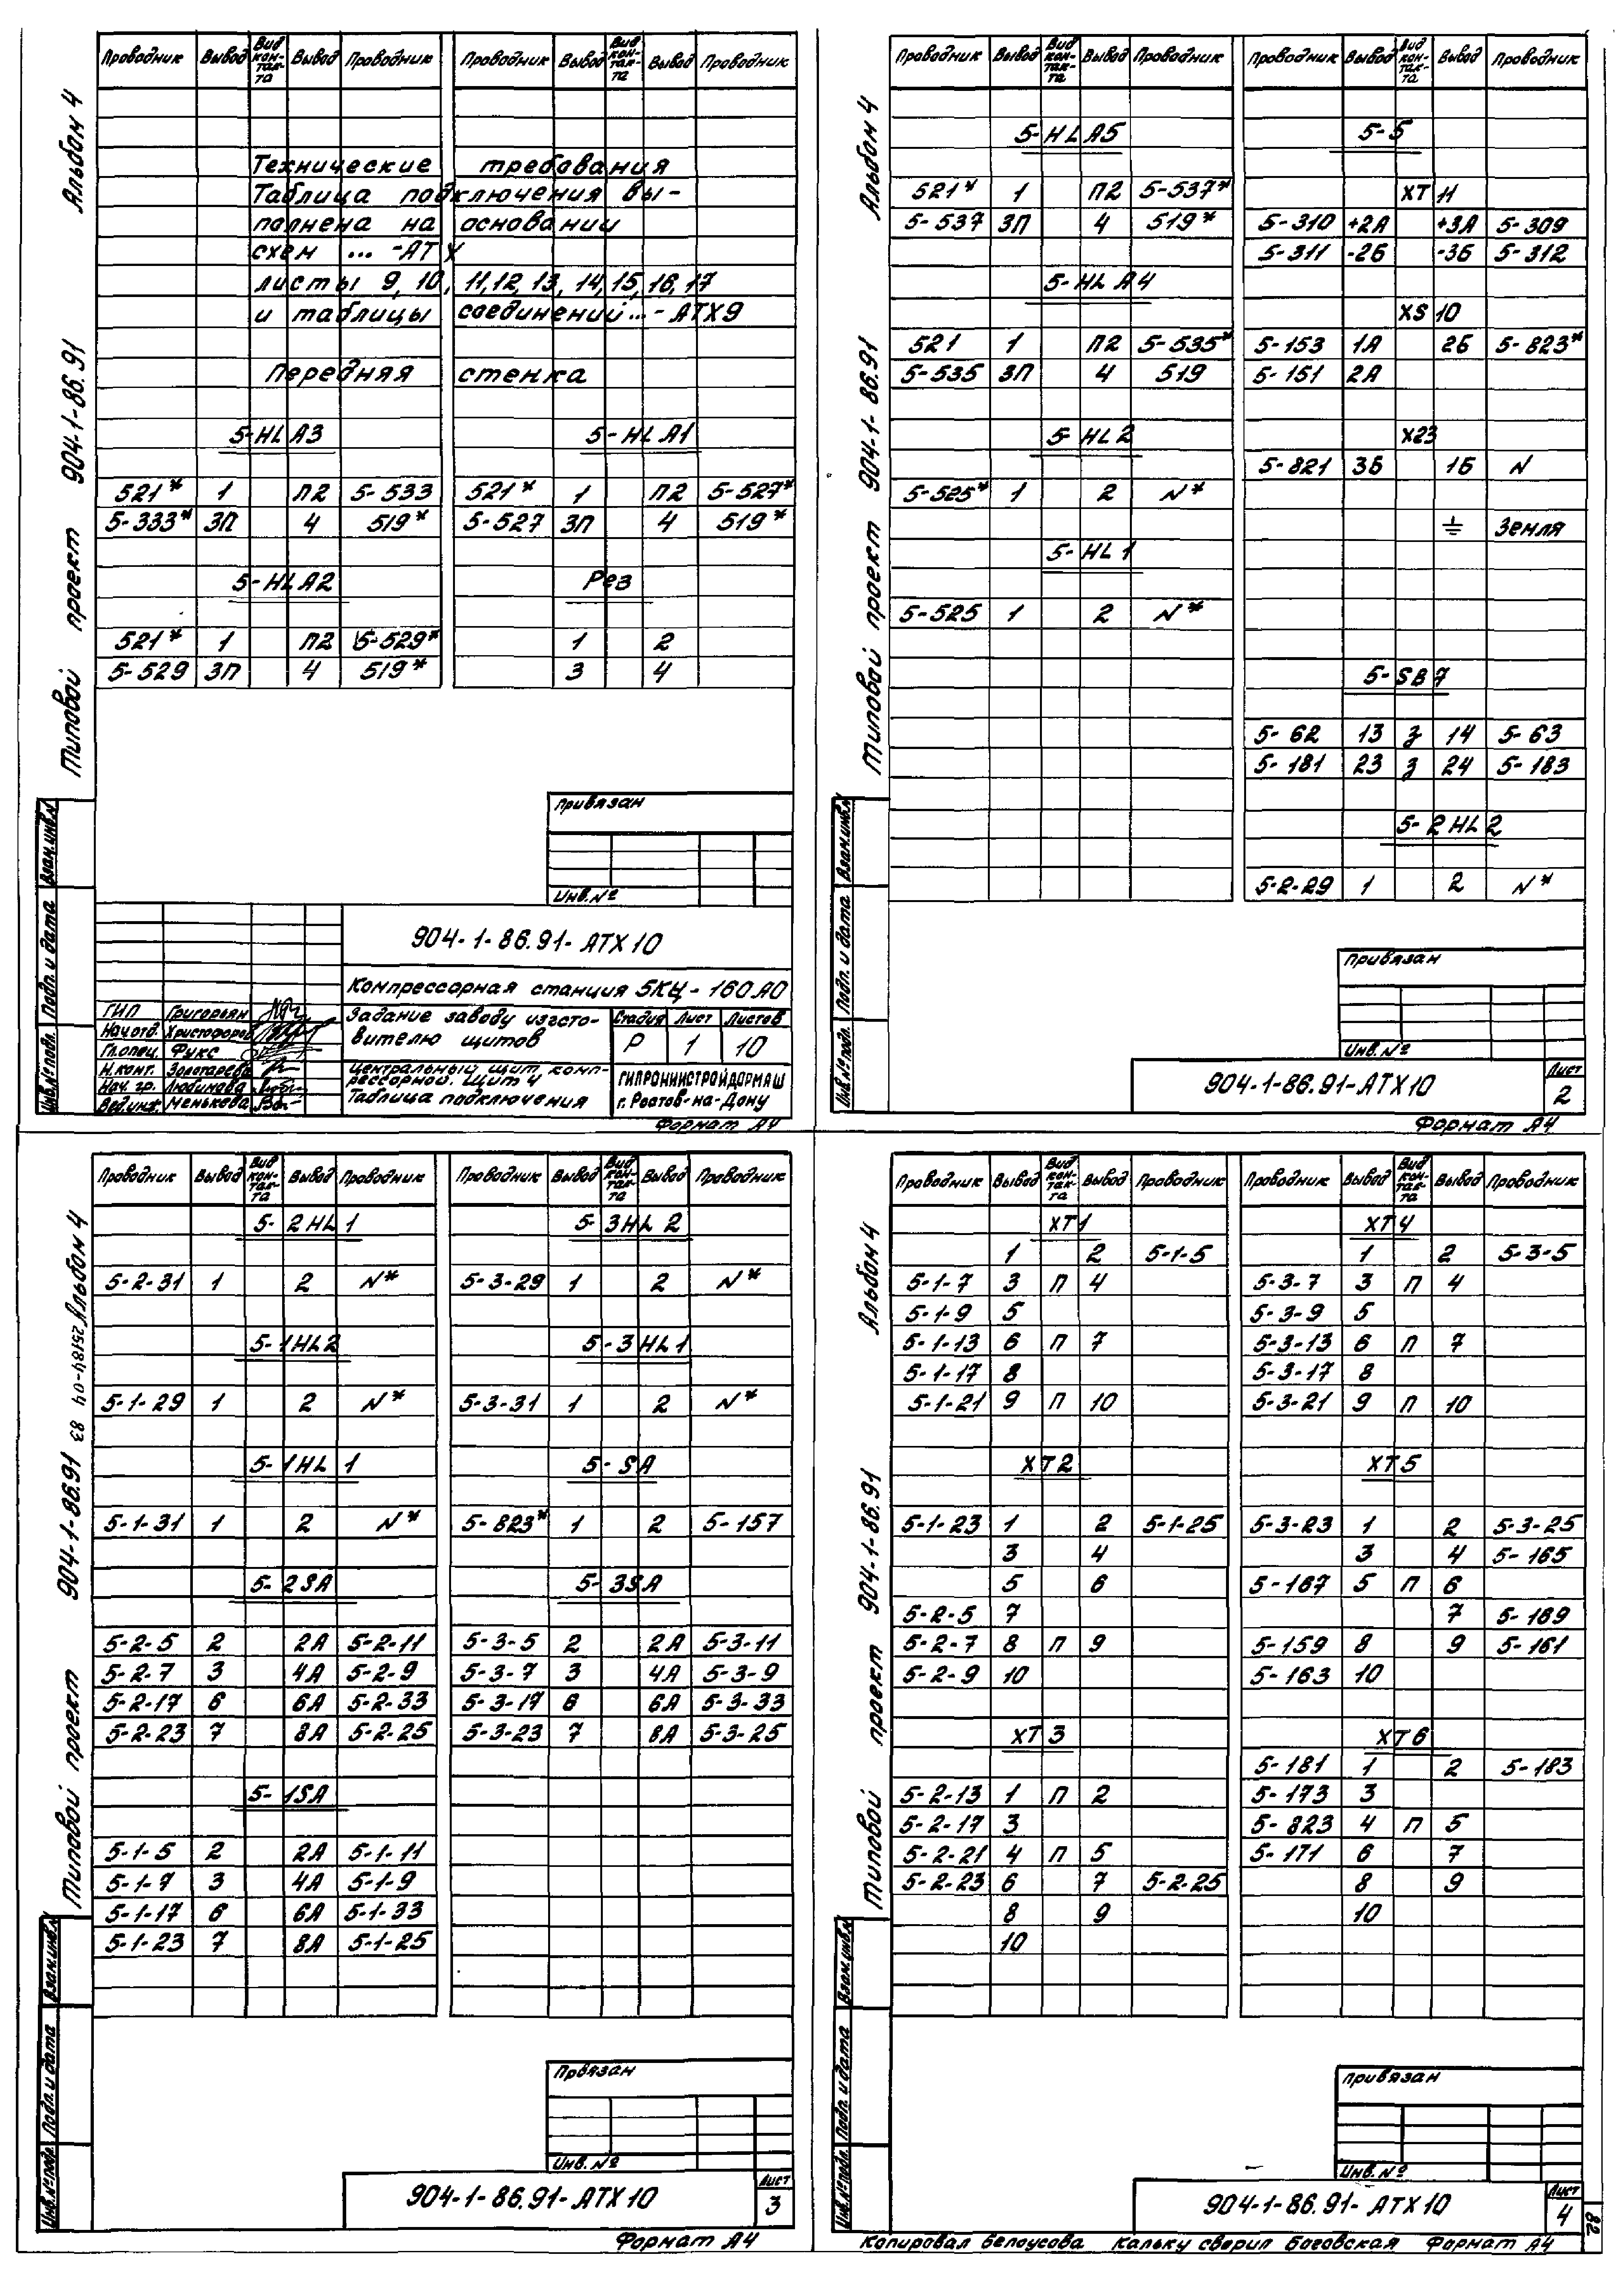 Альбом 4
904-1-86.91
Типовой проект
Проводник Вывод Вид кон-так-та Вывод Проводник Проводник Вывод Вид кон-так-та Вывод Проводник
Технические требования
Таблица подключения вы-
полнена на основании
схем ... -АТХ
листы 9, 10, 11,12, 13, 14, 15, 16, 17
и таблицы соединений...-АТХ9
Передняя стенка
5-HLA3 5-HLA1
521* 1 П2 5-533 521* 1 П2 5-527*
5-333* 3П 4 519* 5-527 3П 4 519*
5-HLA2 Рез
521* 1 П2 5-529* 1 2
5-529 3П 4 519* 3 4
Привязан
Инв.№
904-1-86.91-АТХ10
Компрессорная станция 5КЦ-160А0
Задание заводу изгото-
вителю щитов
Стадия Лист Листов
Р 1 10
Центральный щит комп-
рессорной. Щит 4
Таблица подключения
ГИПРОНИИСТРОЙДОРМАШ
г. Ростов-на-Дону
ГИП Григорьян
Нач.отд. Христофоров
Гл.спец. Фукс
Н.конт. Золотарева
Нач. гр. Любимова
Вед.инж. Менькова
Инв.№ подл. Подп. и дата Взам.инв.№
Формат А4
Альбом 4
904-1-86.91
Типовой проект
Проводник Вывод Вид кон-так-та Вывод Проводник Проводник Вывод Вид кон-так-та Вывод Проводник
5-HLA5 5-5
521* 1 П2 5-537* XT11
5-537 3П 4 519* 5-310 +2А +3А 5-309
5-311 -2Б -3Б 5-312
5-HLA4
XS10
521 1 П2 5-535* 5-153 1А 2Б 5-823*
5-535 3П 4 519 5-151 2А
5-HL2 X23
5-821 3Б 1Б N
5-525* 1 2 N*
⏚ Земля
5-HL1
5-525 1 2 N*
5-SB7
5-62 13 з 14 5-63
5-181 23 з 24 5-183
5-2HL2
5-2-29 1 2 N*
Привязан
Инв.№
904-1-86.91-АТХ10
Лист
2
Инв.№ подл. Подп. и дата Взам.инв.№
Формат А4
Альбом 4
25184-04 83
904-1-86.91
Типовой проект
Проводник Вывод Вид кон-так-та Вывод Проводник Проводник Вывод Вид кон-так-та Вывод Проводник
5-2HL1 5-3HL2
5-2-31 1 2 N* 5-3-29 1 2 N*
5-1HL2 5-3HL1
5-1-29 1 2 N* 5-3-31 1 2 N*
5-1HL1 5-SA
5-1-31 1 2 N* 5-823* 1 2 5-157
5-2SA 5-3SA
5-2-5 2 2А 5-2-11 5-3-5 2 2А 5-3-11
5-2-7 3 4А 5-2-9 5-3-7 3 4А 5-3-9
5-2-17 6 6А 5-2-33 5-3-17 6 6А 5-3-33
5-2-23 7 8А 5-2-25 5-3-23 7 8А 5-3-25
5-1SA
5-1-5 2 2А 5-1-11
5-1-7 3 4А 5-1-9
5-1-17 6 6А 5-1-33
5-1-23 7 8А 5-1-25
Привязан
Инв.№
904-1-86.91-АТХ10
Лист
3
Инв.№ подл. Подп. и дата Взам.инв.№
Формат А4
Альбом 4
904-1-86.91
Типовой проект
Проводник Вывод Вид кон-так-та Вывод Проводник Проводник Вывод Вид кон-так-та Вывод Проводник
XT1 XT4
1 2 5-1-5 1 2 5-3-5
5-1-7 3 П 4 5-3-7 3 П 4
5-1-9 5 5-3-9 5
5-1-13 6 П 7 5-3-13 6 П 7
5-1-17 8 5-3-17 8
5-1-21 9 П 10 5-3-21 9 П 10
XT2 XT5
5-1-23 1 2 5-1-25 5-3-23 1 2 5-3-25
3 4 3 4 5-165
5 6 5-167 5 П 6
5-2-5 7 7 5-169
5-2-7 8 П 9 5-159 8 9 5-161
5-2-9 10 5-163 10
XT3 XT6
5-181 1 2 5-183
5-2-13 1 П 2 5-173 3
5-2-17 3 5-823 4 П 5
5-2-21 4 П 5 5-171 6 7
5-2-23 6 7 5-2-25 8 9
8 9 10
10
Привязан
Инв.№
904-1-86.91-АТХ10
Лист
4
82
Инв.№ подл. Подп. и дата Взам.инв.№
Копировал Белоусова Кальку сверил Боговская Формат А4